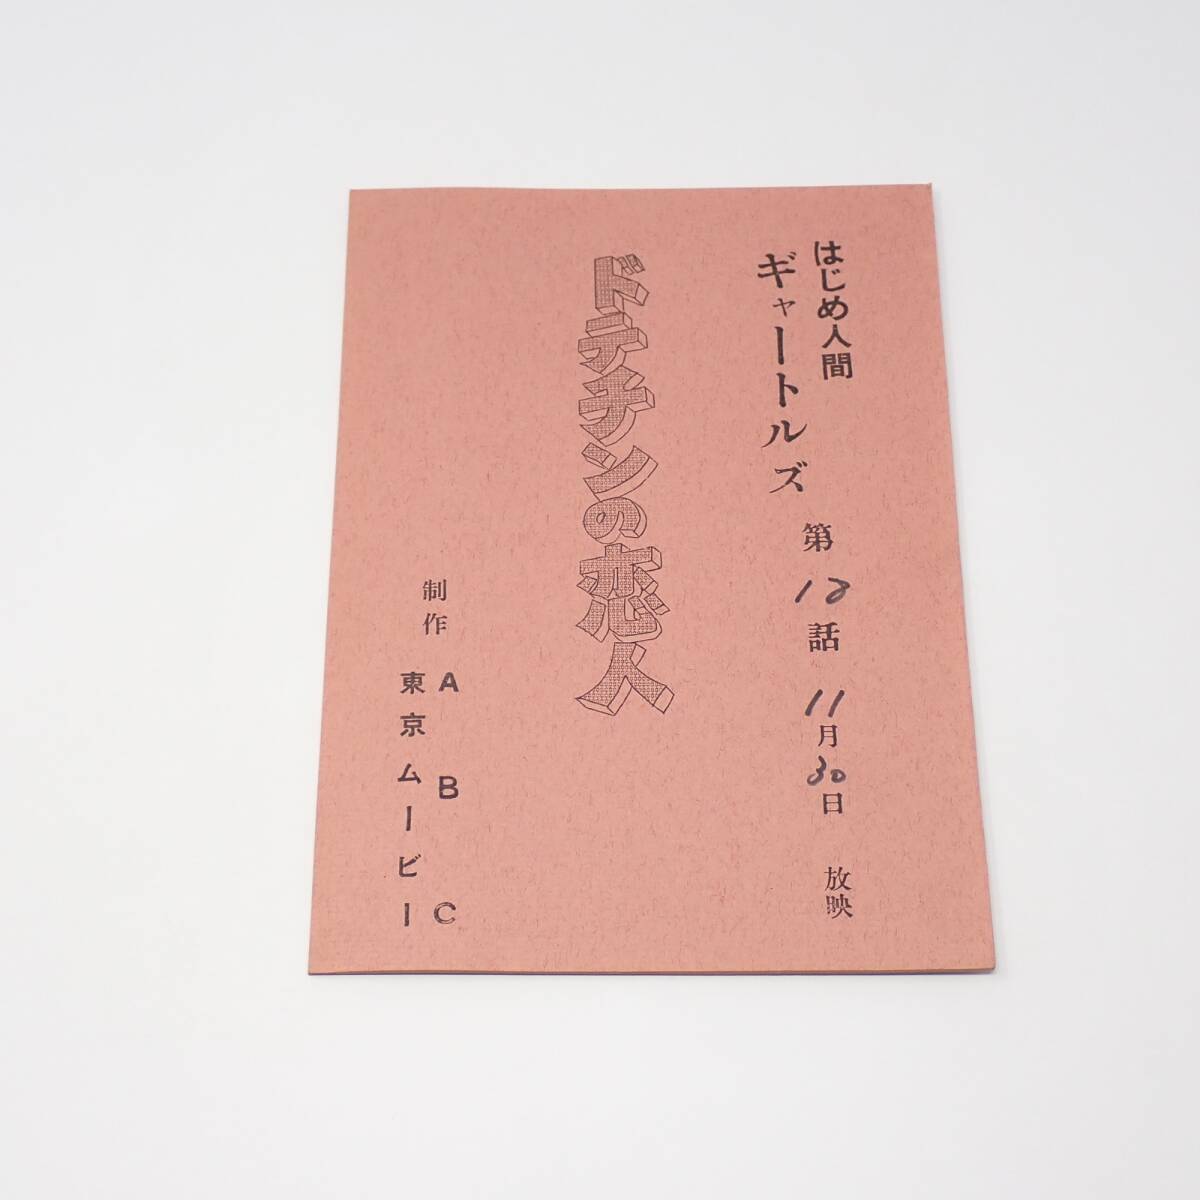 はじめ人間
ギャートルズ
第18話 11月30日 放映
ドテチンの恋人
制作 ABC
東京ムービー